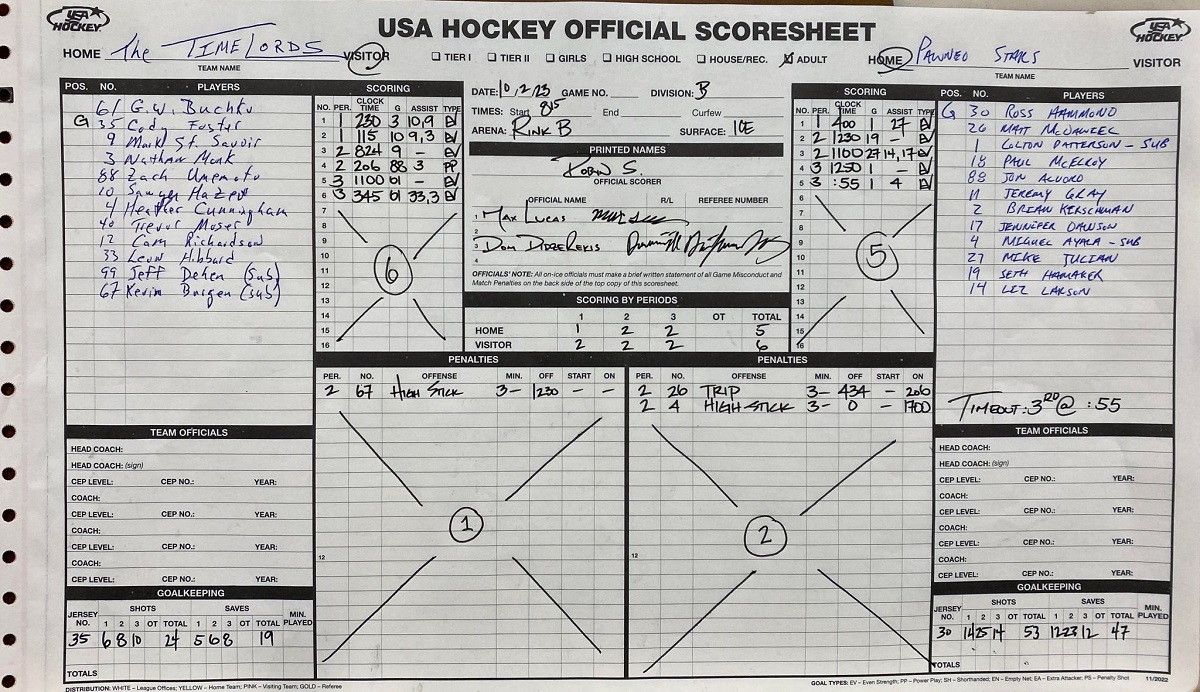 USA HOCKEY
USA HOCKEY OFFICIAL SCORESHEET
USA HOCKEY
HOME The TIMELORDS VISITOR
TEAM NAME
TIER I TIER II GIRLS HIGH SCHOOL HOUSE/REC. ADULT
HOME PAWNED STARS VISITOR
TEAM NAME
POS. NO. PLAYERS
61 G.W. Buchko
G 35 Cody Foster
9 Mark St. Savoir
3 Nathan Monk
88 Zach Umemoto
10 Sawyer
4 Heather Cunningham
40 Trevor Moser
12 Cam Richardson
33 Leon Hibbard
99 Jeff Dehen (Sub)
67 Kevin (sub)
SCORING
NO. PER. CLOCK TIME G ASSIST TYPE
1 1 230 3 10,9 EV
2 1 115 10 9,3 EV
3 2 824 9 - EV
4 2 206 88 3 PP
5 3 1100 61 - EV
6 3 345 61 33,3 EV
7
8
9
10
11
12
13
14
15
16
6
DATE: 10/2/23 GAME NO. DIVISION: B
TIMES: Start 815 End Curfew
ARENA: RINK B SURFACE: ICE
PRINTED NAMES
ROBIN S.
OFFICIAL SCORER
OFFICIAL NAME R/L REFEREE NUMBER
1 MAX LUCAS
2
3 DOM
4
OFFICIALS' NOTE: All on-ice officials must make a brief written statement of all Game Misconduct and
Match Penalties on the back side of the top copy of this scoresheet.
SCORING BY PERIODS
1 2 3 OT TOTAL
HOME 1 2 2 5
VISITOR 2 2 2 6
SCORING
NO. PER. CLOCK TIME G ASSIST TYPE
1 1 400 1 27 EV
2 2 1230 19 - EV
3 2 1100 27 14,17 EV
4 3 1250 1 - EV
5 3 :55 1 4 EV
6
7
8
9
10
11
12
13
14
15
16
5
POS. NO. PLAYERS
G 30 ROSS HAMMOND
26 MATT MCDANIEL
1 COLTON PATTERSON - SUB
18 PAUL MCELROY
88 JON ALVORD
11 JEREMY GRAY
2 BRIAN KERSCHMAN
17 JENNIFER DAWSON
4 MIGUEL AYALA - SUB
27 MIKE JULIAN
19 SETH HAMAKER
14 LIZ LARSON
TIMEOUT: 3RD @ :55
PENALTIES
PER. NO. OFFENSE MIN. OFF START ON
2 67 HIGH STICK 3- 1230 -
12
1
PENALTIES
PER. NO. OFFENSE MIN. OFF START ON
2 26 TRIP 3- 434 - 206
2 4 HIGH STICK 3- 0 - 1700
12
2
TEAM OFFICIALS
HEAD COACH:
HEAD COACH: (sign)
CEP LEVEL: CEP NO.: YEAR:
COACH:
CEP LEVEL: CEP NO.: YEAR:
COACH:
CEP LEVEL: CEP NO.: YEAR:
COACH:
CEP LEVEL: CEP NO.: YEAR:
GOALKEEPING
JERSEY NO. SHOTS SAVES MIN. PLAYED
1 2 3 OT TOTAL 1 2 3 OT TOTAL
35 6 8 10 24 5 6 8 19
TOTALS
TEAM OFFICIALS
HEAD COACH:
HEAD COACH: (sign)
CEP LEVEL: CEP NO.: YEAR:
COACH:
CEP LEVEL: CEP NO.: YEAR:
COACH:
CEP LEVEL: CEP NO.: YEAR:
COACH:
CEP LEVEL: CEP NO.: YEAR:
GOALKEEPING
JERSEY NO. SHOTS SAVES MIN. PLAYED
1 2 3 OT TOTAL 1 2 3 OT TOTAL
30 14 25 14 53 12 23 12 47
TOTALS
DISTRIBUTION: WHITE – League Offices; YELLOW – Home Team; PINK – Visiting Team; GOLD – Referee
GOAL TYPES: EV – Even Strength; PP – Power Play; SH – Shorthanded; EN – Empty Net; EA – Extra Attacker; PS – Penalty Shot 11/2022